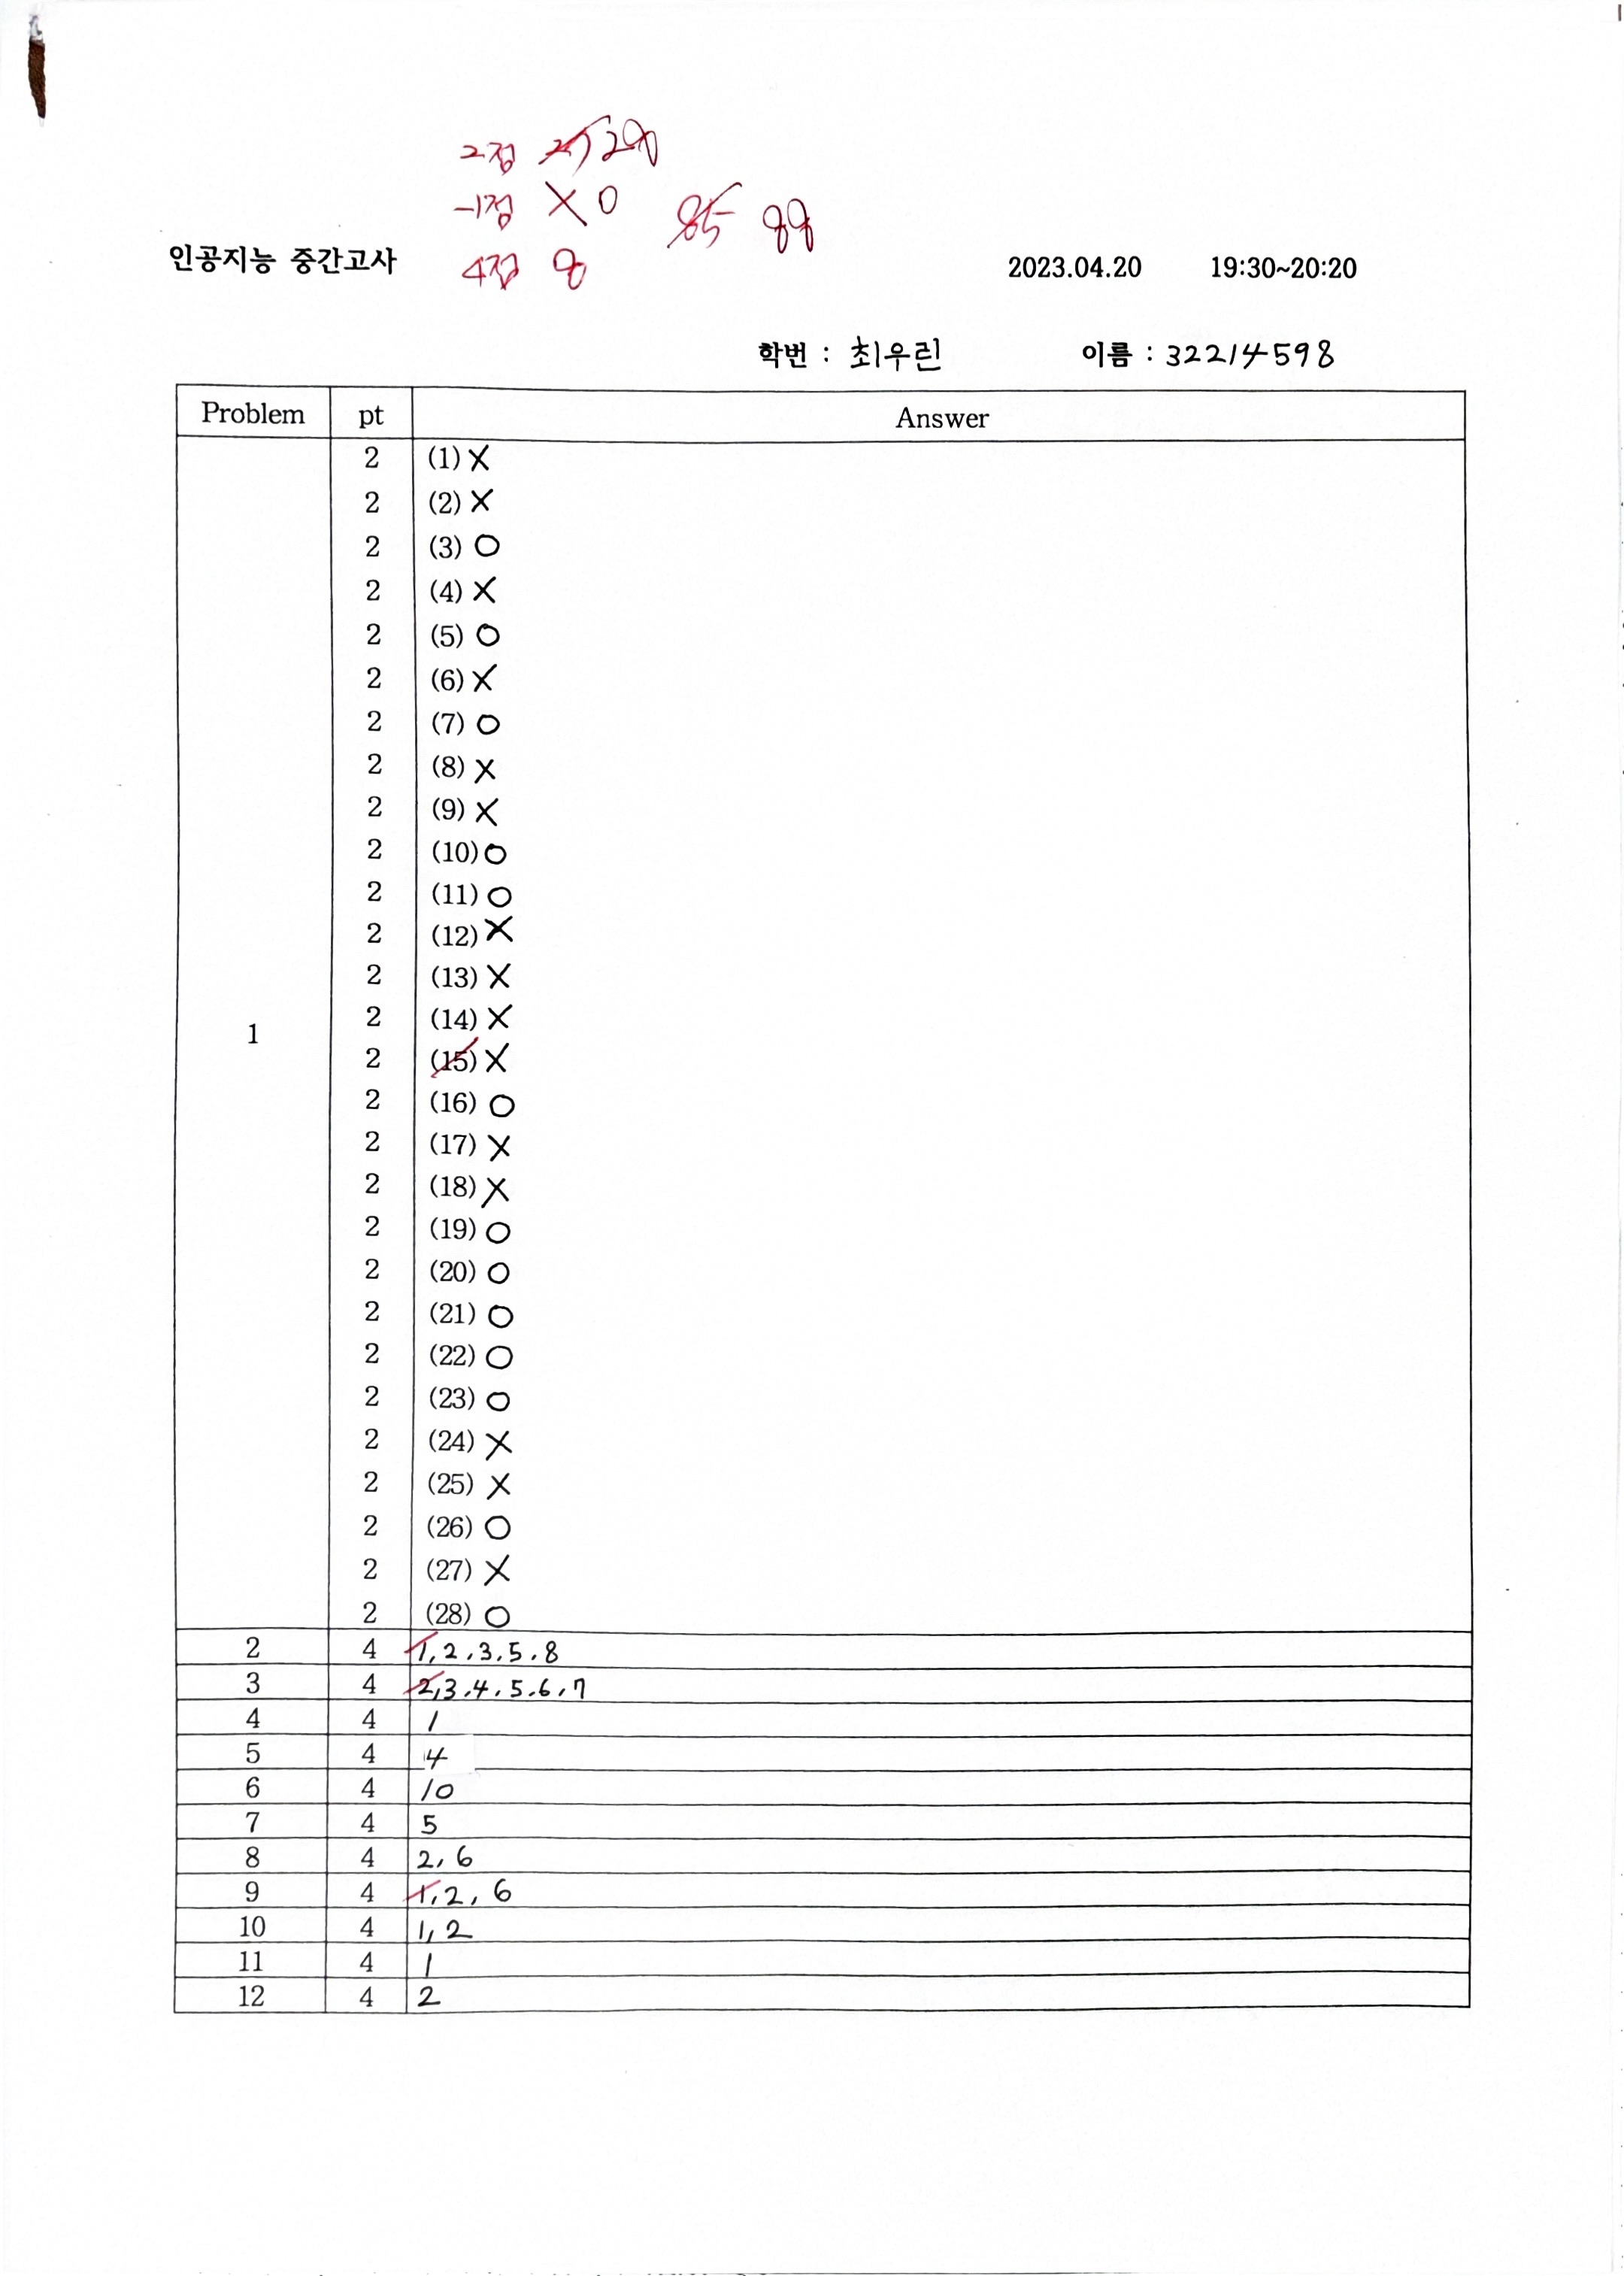 2점
-1점 X 0
4점 8
인공지능 중간고사 2023.04.20 19:30~20:20
학번 : 최우린 이름 : 32214598
Problem pt Answer
2 (1) X
2 (2) X
2 (3) O
2 (4) X
2 (5) O
2 (6) X
2 (7) O
2 (8) X
2 (9) X
2 (10) O
2 (11) O
2 (12) X
2 (13) X
2 (14) X
1
2 (15) X
2 (16) O
2 (17) X
2 (18) X
2 (19) O
2 (20) O
2 (21) O
2 (22) O
2 (23) O
2 (24) X
2 (25) X
2 (26) O
2 (27) X
2 (28) O
2 4 1, 2, 3, 5, 8
3 4 2, 3, 4, 5, 6, 7
4 4 1
5 4 4
6 4 10
7 4 5
8 4 2, 6
9 4 1, 2, 6
10 4 1, 2
11 4 1
12 4 2